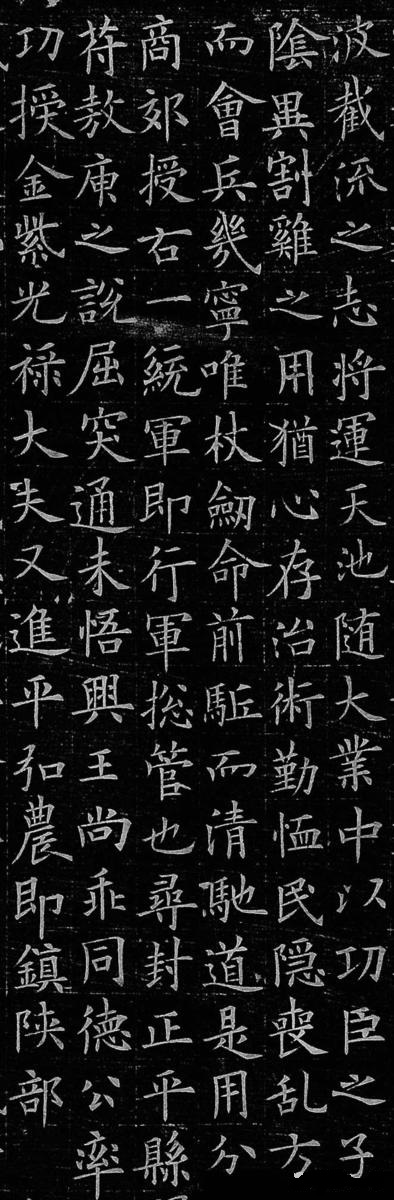 波截流之志将運天池随大業中以功臣之子
陰異割雞之用猶心存治術勤恤民隠喪乱方
而會兵幾寧唯杖劒命前駈而清馳道是用分
商郊授右一統軍即行軍捴管也尋封正平縣
苻敖庾之說屈突通未悟興王尚乖同德公率
功授金紫光禄大夫又進平弘農即鎮陝部